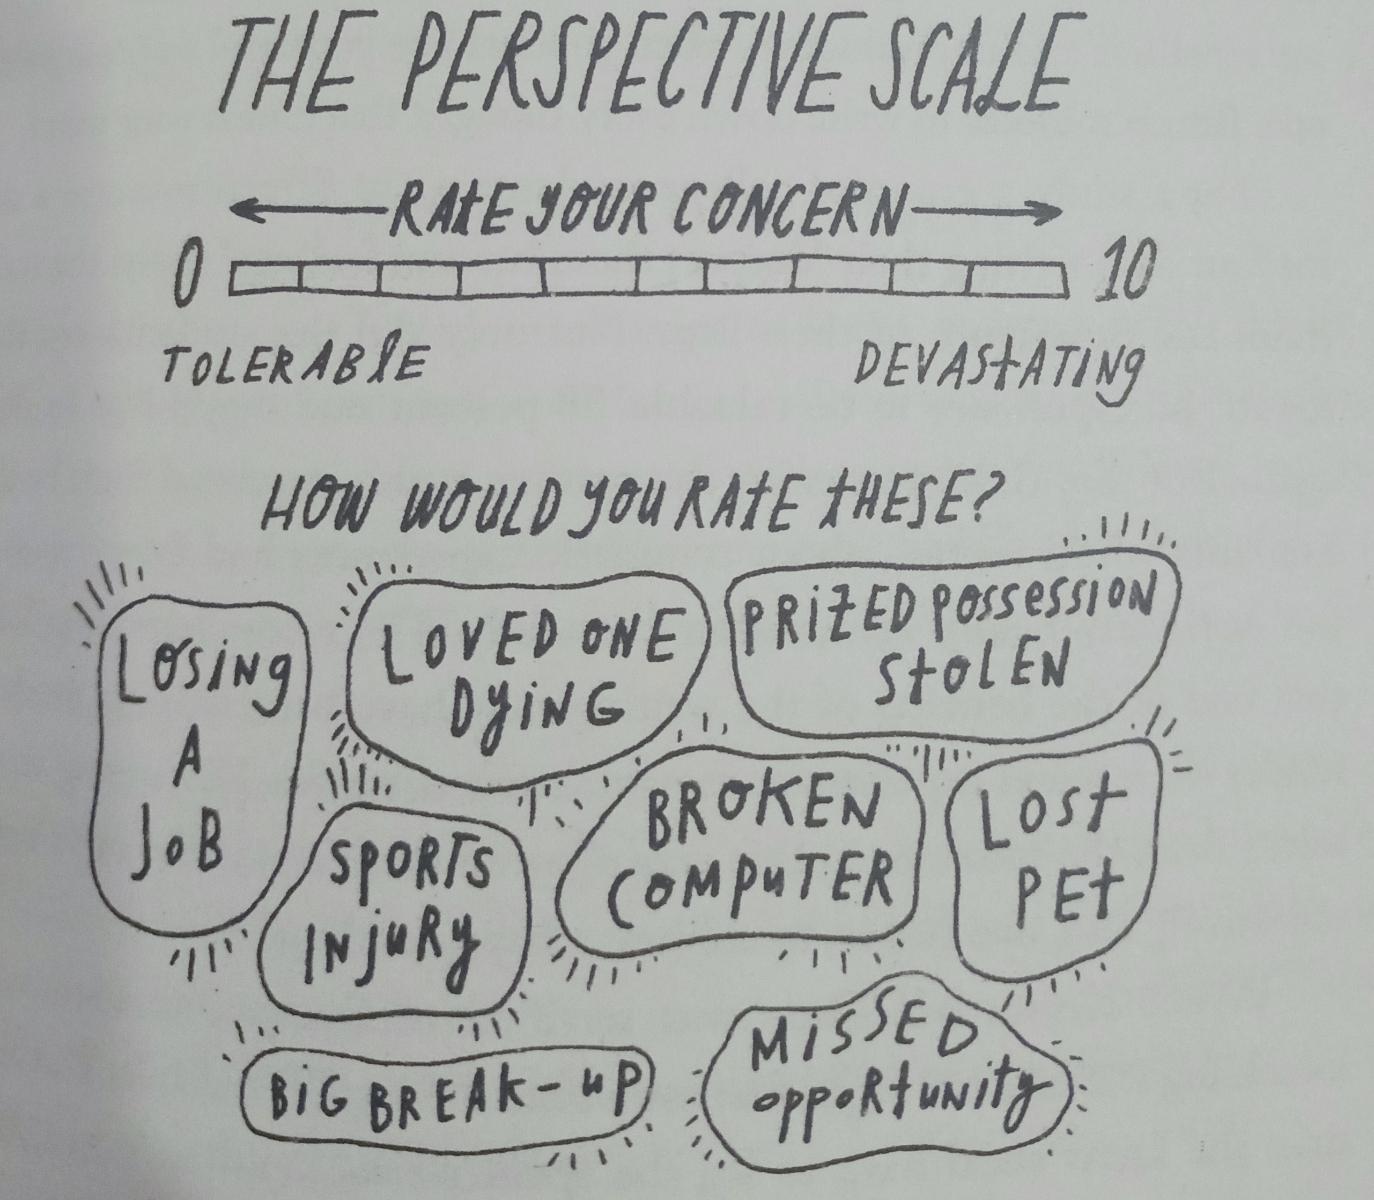 THE PERSPECTIVE SCALE
RATE YOUR CONCERN
0 10
TOLERABLE DEVASTATING
HOW WOULD YOU RATE THESE?
LOSING
A
JOB
LOVED ONE
DYING
PRIZED POSSESSION
STOLEN
SPORTS
INJURY
BROKEN
COMPUTER
LOST
PET
BIG BREAK-UP
MISSED
OPPORTUNITY